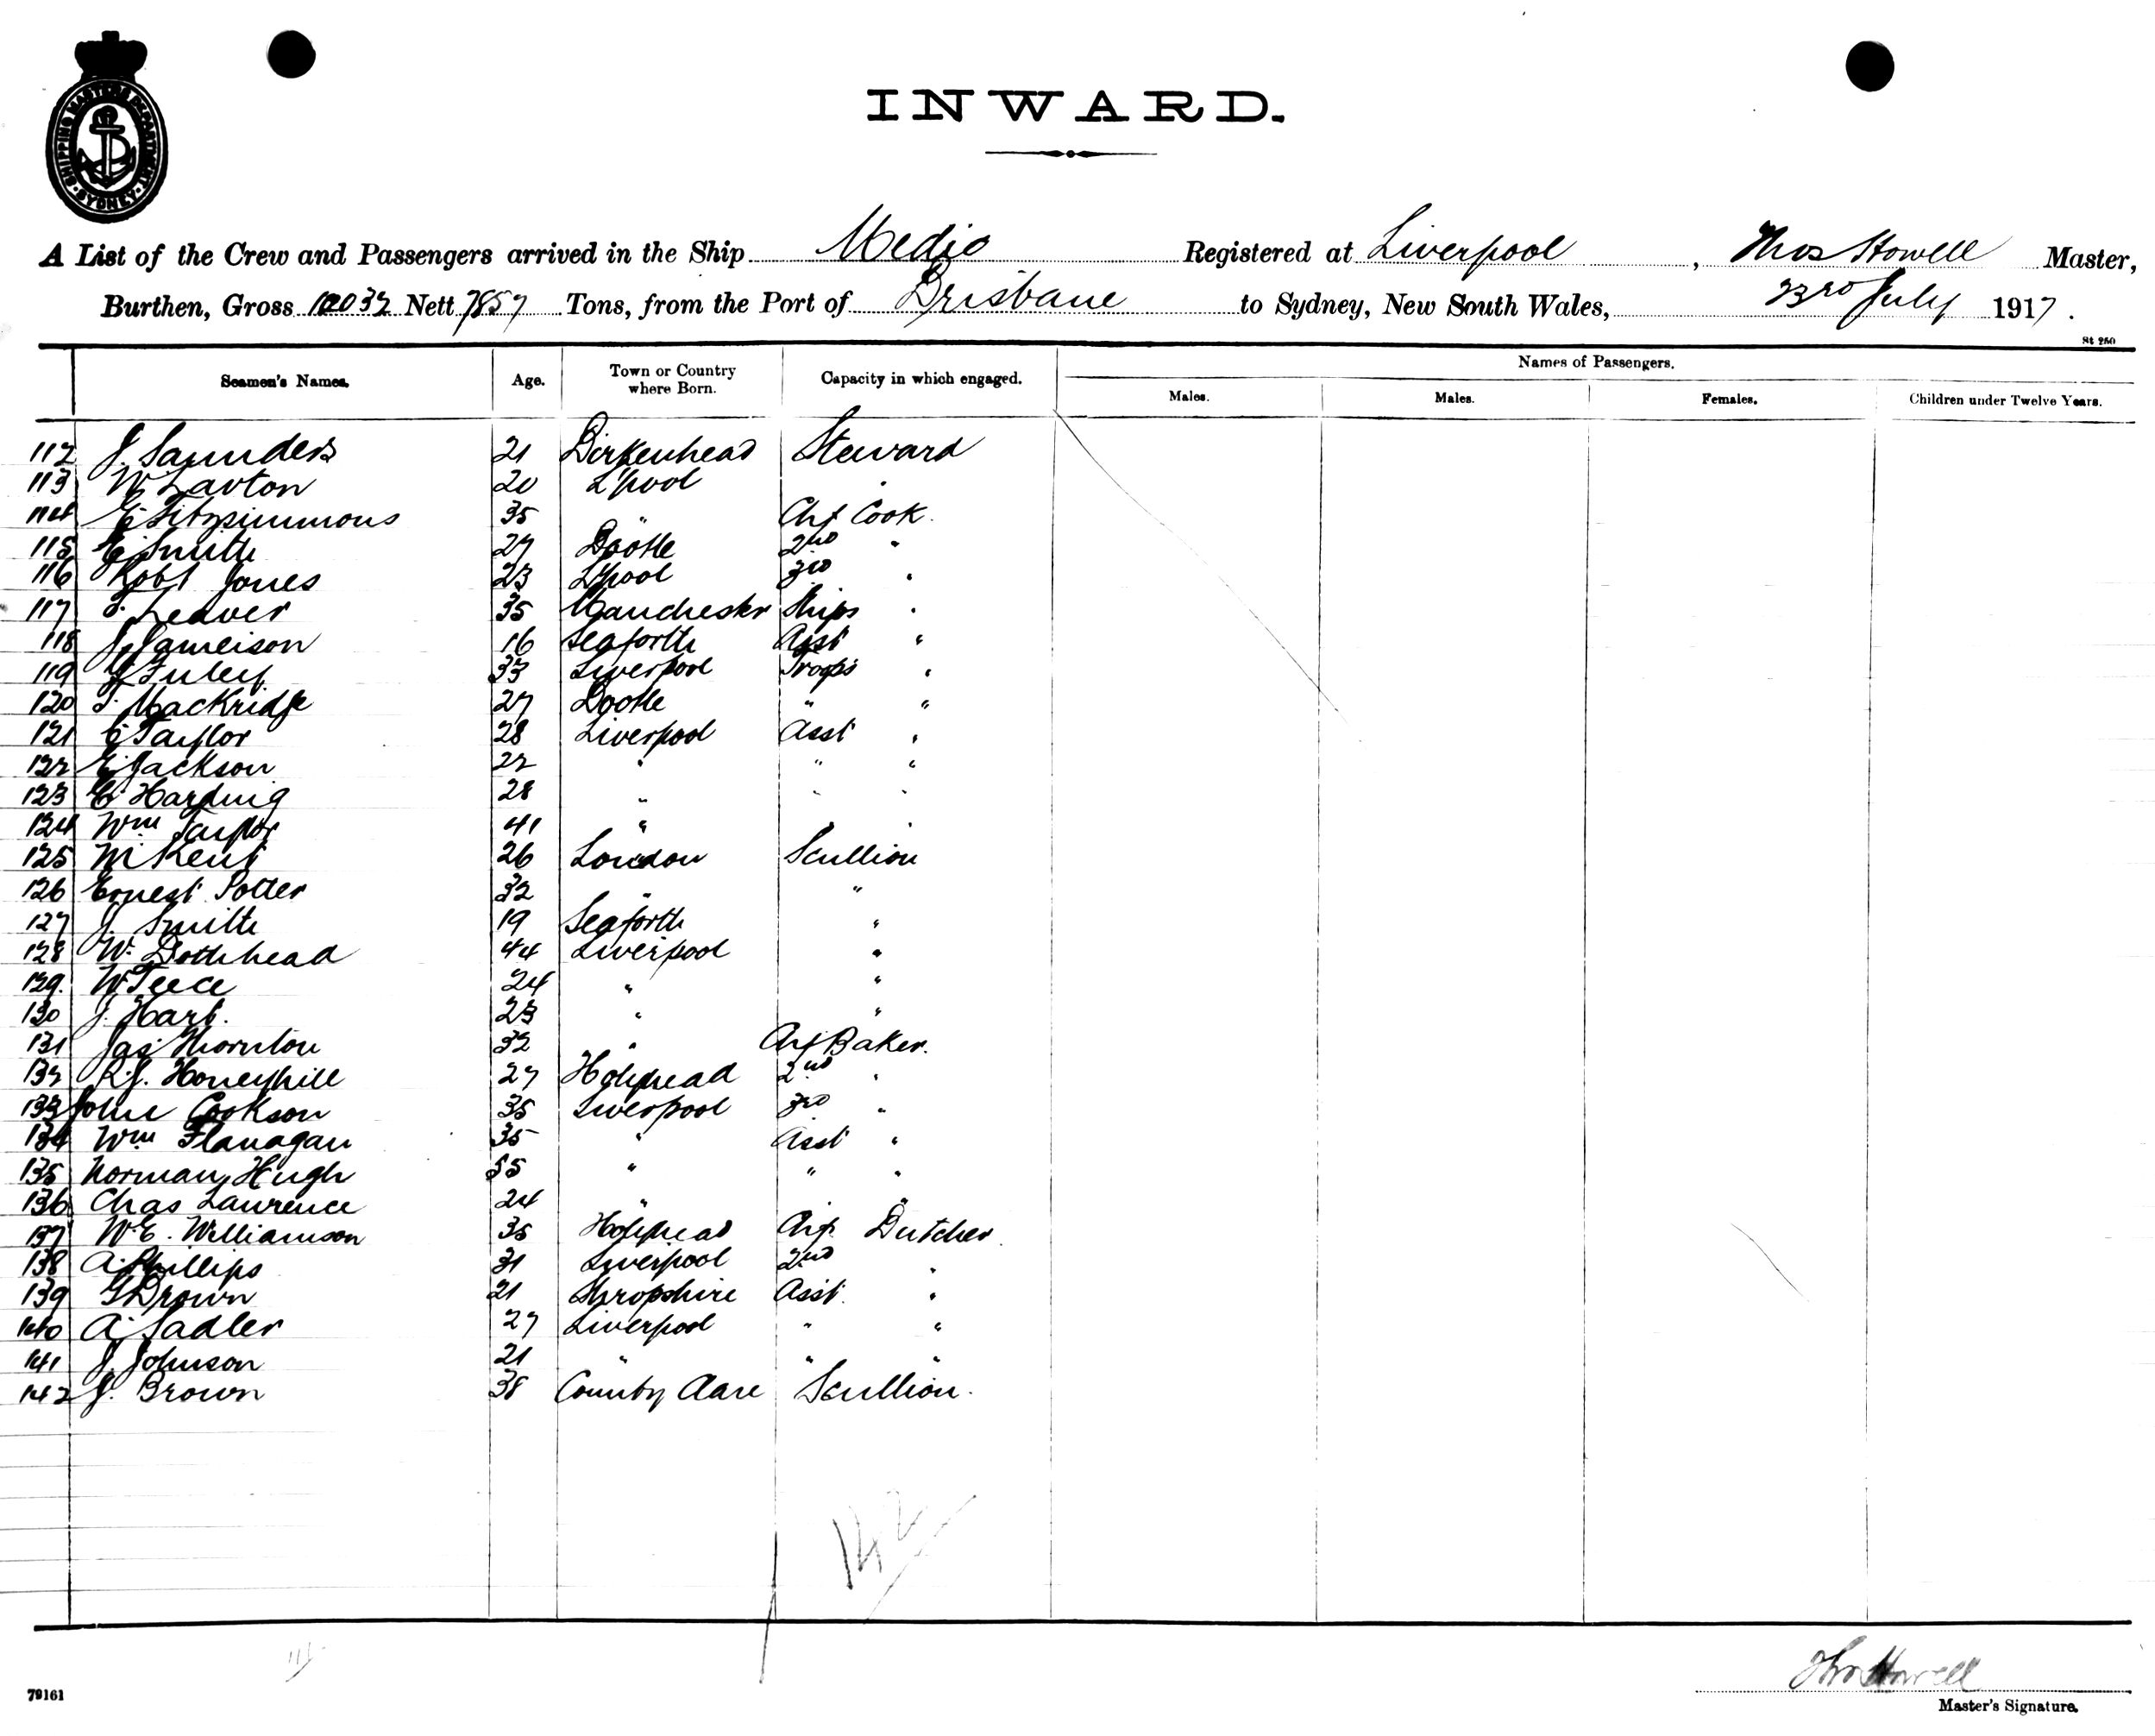 SHIPPING MASTERS DEPARTMENT SYDNEY
INWARD.
A List of the Crew and Passengers arrived in the Ship Medic Registered at Liverpool, Thos Howell Master,
Burthen, Gross 12032 Nett 7857 Tons, from the Port of Brisbane to Sydney, New South Wales, 23rd July 1917.
St 250
Seamen's Names. Age. Town or Country where Born. Capacity in which engaged. Names of Passengers.
Males. Males. Females. Children under Twelve Years.
112 J. Saunders 21 Birkenhead Steward
113 W. Laxton 20 L'pool "
114 E Fitzsimmons 35 " Chf Cook.
115 E Smith 27 Bootle 2nd "
116 Robt Jones 23 L'pool 3rd "
117 T. Leaver 35 Manchester Ships "
118 J. Jameison 16 Seaforth Asst "
119 33 Liverpool Troops "
120 T. Mackridge 27 Bootle " "
121 C Taylor 28 Liverpool Asst "
122 E Jackson 22 " " "
123 E Harding 28 " " "
124 Wm Taylor 41 " " "
125 M Kent 26 London Scullion
126 Ernest Potter 32 " "
127 J. Smith 19 Seaforth "
128 W. Bothhead 44 Liverpool "
129. W Teece 24 " "
130 J. Hart. 23 " "
131 Jas Thornton 32 " Chf Baker.
132 R.J. Honeyhill 27 Holyhead 2nd "
133 John Cookson 35 Liverpool 3rd "
134 Wm Flanagan 35 " Asst "
135 Norman Hugh 55 " " "
136 Chas Lawrence 24 " "
137 W.E. Williamson 35 Holyhead Chf. Butcher
138 A. Phillips 31 Liverpool 2nd "
139 G Brown 21 Shropshire Asst. "
140 A. Sadler 27 Liverpool " "
141 J Johnson 21 " " "
142 J. Brown 38 County Clare Scullion.
142
Thos Howell
Master's Signature.
79161